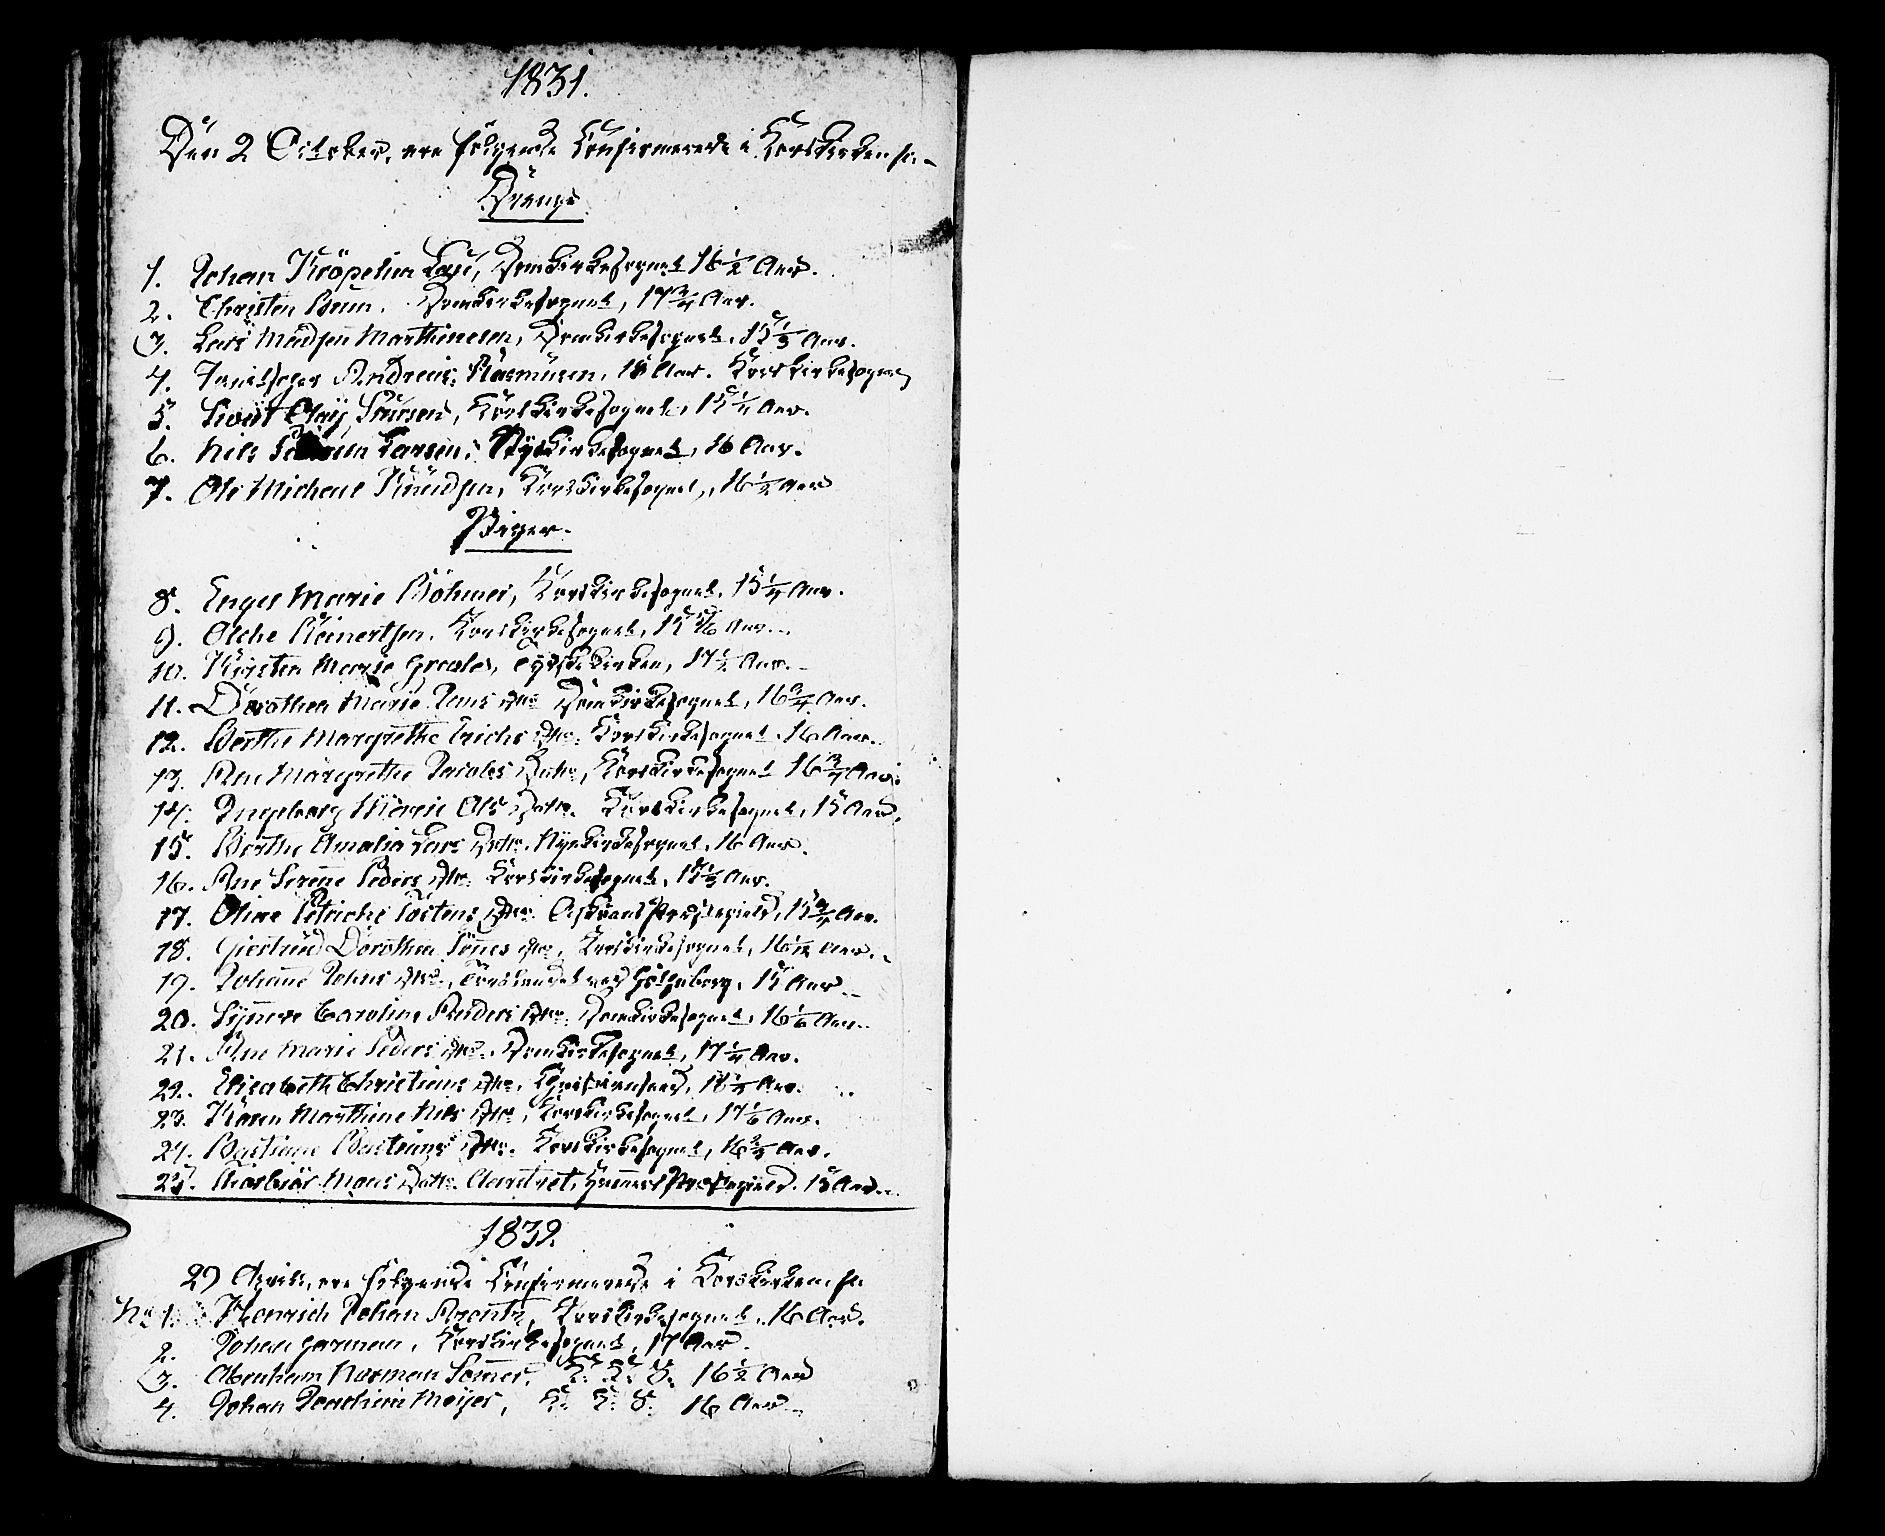 1831.
Den 2 October, ere følgende Confirmerede i Korskirken
Drenge
1. Johan Kröpelin Lau, Domkirkesognet 16 1/2 Aar.
2. Christen Brun, Domkirkesognet, 17 3/4 Aar.
3. Lars Madsen Marthinesen, Domkirkesognet, 15 1/3 Aar.
4. Andreas Rasmusen, 18 Aar. Korskirkesognet
5. Sivert Olay Iversen, Korskirkesognet, 15 1/4 Aar.
6. Nils Larsen, Nyekirkesognet, 16 Aar.
7. Ole Michael Knudsen, Korskirkesognet, 16 1/2 Aar
Piger.
8. Engel Marie Böhmer, Korskirkesognet, 15 1/4 Aar.
9. Olche Reinertsen, Korskirkesognet, 15 5/6 Aar.
10. Kirsten Marie Greales, Tydskekirken, 17 1/2 Aar.
11. Dorothea Marie Jans Dtr Domkirkesognet, 16 3/4 Aar.
12. Berthe Margrethe Erichs Dtr. Korskirkesognet 16 Aar.
13. Ane Margrethe Jacobs Datr, Korskirkesognet 16 3/4 Aar.
14. Ingeborg Marie Ols Dattr. Korskirkesognet, 15 Aar.
15. Berthe Amalia Lars Dattr. Nyekirkesognet, 16 Aar.
16. Ane Serine Peders Dtr. Korskirkesognet, 15 1/3 Aar.
17. Oline Petriche Tostens Dtr. Præstegield, 15 3/4 Aar.
18. Giertrud Dorothea Tønes Dtr, Korskirkesognet, 16 1/12 Aar.
19. Johanne Johns Dtr., 15 Aar
20. Synneve Caroline Anders Dtr. Domkirkesognet, 16 1/6 Aar.
21. Ane Marie Peders Dtr. Domkirkesognet, 17 1/4 Aar.
22. Elisabeth Christians Dtr, Christiansand, 18 1/2 Aar.
23. Karen Marthine Nils Dtr, Korskirkesognet, 17 1/6 Aar.
24. Bastiane Bastians Dtr. Korskirkesognet, 16 2/3 Aar.
25. Mons Dattr. Præstegield. 15 Aar.
1832.
29 April, ere følgende Confirmerede i Korskirken
No 1. Henrich Johan Arentz, Korskirkesognet, 16 Aar.
2. Johan German, Korskirkesognet, 17 Aar.
3. Abraham Harman Sömer, K. K. S. 16 1/2 Aar
4. Johan Joachim Meÿer, K. K. S. 16 Aar